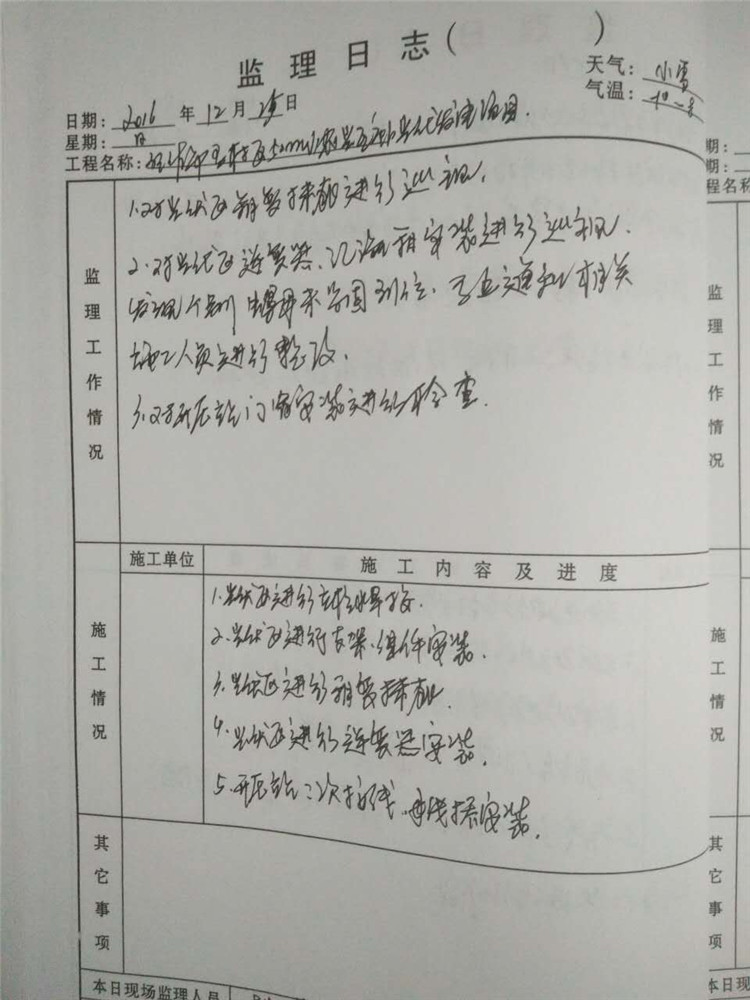 监理日志( )
天气：小雪
日期：2016年12月25日
气温：
星期：日
工程名称：50MW 项目.
1.对光伏区箱变接线进行巡视.
2.对光伏区逆变器、汇流箱安装进行巡视.
发现个别未紧固到位，已通知相关
施工人员进行整改.
3.对开压站门窗安装进行检查.
监理工作情况
施工单位 施工内容及进度
1.光伏区进行焊接.
2.光伏区进行支架、组件安装.
3.光伏区进行箱变接
4.光伏区进行逆变器安装.
5.开压站二次接线、安装.
施工情况
其它事项
本日现场监理人员
期：
期：
程名称
监理工作情况
施工情况
其它事项
本日现